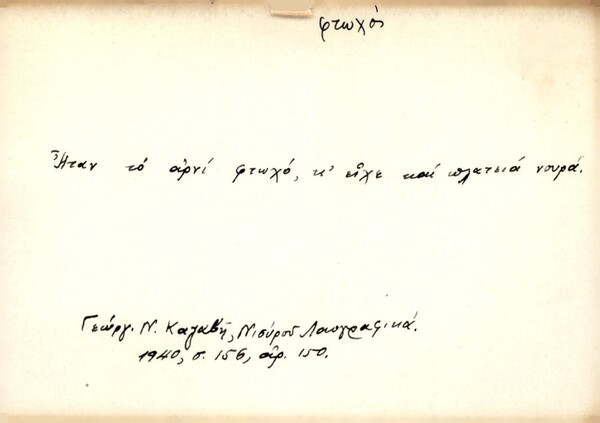 φτωχός
Ἦταν τὸ ἀρνί φτωχό, κ' εἶχε καὶ πλατειά νουρά.
Γεώργ. Ν. Καζαβῆ, Νισύρου Λαογραφικά.
1940, σ. 156, ἀρ. 150.